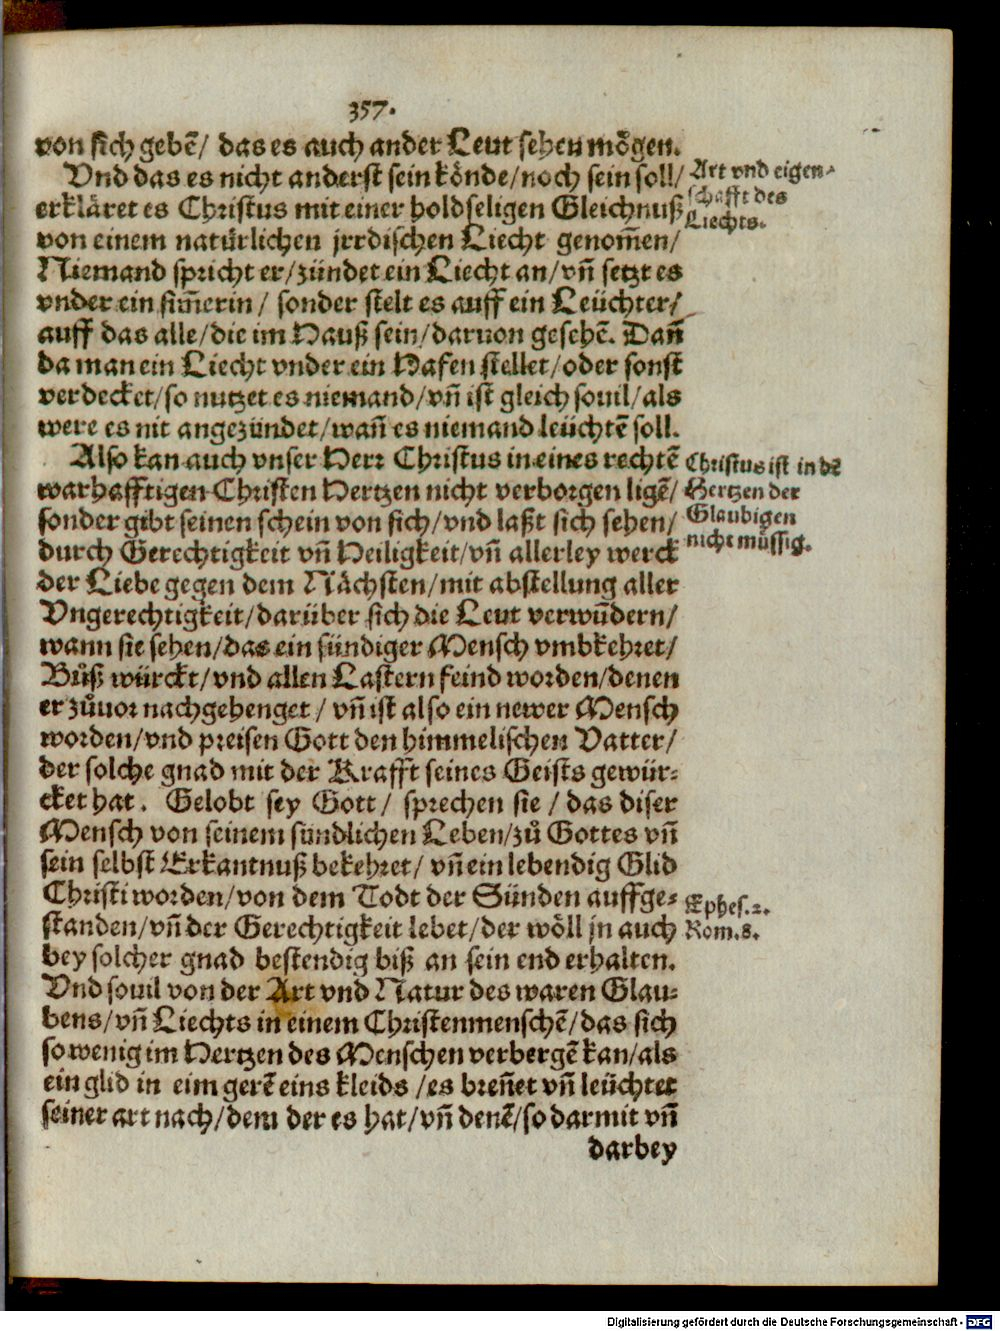 357.
von sich gebẽ/ das es auch ander Leut sehen mögen.
Vnd das es nicht anderst sein könde/noch sein soll/
Art vnd eigen-
schafft des
Liechts.
erkläret es Christus mit einer holdseligen Gleichnuß
von einem natürlichen jrrdischen Liecht genom̃en/
Niemand spricht er/zündet ein Liecht an/vñ setzt es
vnder ein sim̃erin/ sonder stelt es auff ein Leüchter/
auff das alle/die im Hauß sein/daruon gesehẽ. Dañ
da man ein Liecht vnder ein Hafen stellet/oder sonst
verdecket/so nutzet es niemand/vñ ist gleich souil/als
were es nit angezündet/wañ es niemand leüchtẽ soll.
Also kan auch vnser Herr Christus in eines rechtẽ
Christus ist in dẽ
Hertzen der
Glaubigen
nicht müssig.
warhafftigen Christen Hertzen nicht verborgen ligẽ/
sonder gibt seinen schein von sich/vnd laßt sich sehen/
durch Gerechtigkeit vñ Heiligkeit/vñ allerley werck
der Liebe gegen dem Nächsten/mit abstellung aller
Vngerechtigkeit/darüber sich die Leut verwũdern/
wann sie sehen/das ein sündiger Mensch vmbkehret/
Bůß würckt/vnd allen Lastern feind worden/denen
er zůuor nachgehenget/ vñ ist also ein newer Mensch
worden/vnd preisen Gott den himmelischen Vatter/
der solche gnad mit der Krafft seines Geists gewür-
cket hat. Gelobt sey Gott/ sprechen sie/ das diser
Mensch von seinem sündlichen Leben/zů Gottes vñ
sein selbst Erkantnuß bekehret/ vñ ein lebendig Glid
Christi worden/von dem Todt der Sünden auffge-
Ephes.2.
Rom.8.
standen/vñ der Gerechtigkeit lebet/der wöll jn auch
bey solcher gnad bestendig biß an sein end erhalten.
Vnd souil von der Art vnd Natur des waren Glau-
bens/vñ Liechts in einem Christenmenschẽ/das sich
so wenig im Hertzen des Menschen verbergẽ kan/als
ein glid in eim gerẽ eins kleids/es breñet vñ leüchtet
seiner art nach/dem der es hat/vñ denẽ/so darmit vñ
darbey
Digitalisierung gefördert durch die Deutsche Forschungsgemeinschaft - DFG